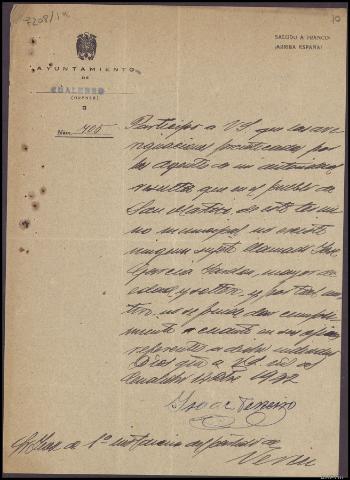 7208/1
10
SALUDO A FRANCO
¡ARRIBA ESPAÑA!
AYUNTAMIENTO
DE
CUALEDRO
(ORENSE)
Núm. 405
Participo a VS. que las ave
riguaciones practicadas por
los agentes de mi autoridad
resulta que en el pueblo de
San Mateo de este termi
no municipal no existe
ningun sujeto llamado José
García mayor de
edad y soltero y por tal mo
tivo no se puede dar cumpli
miento a cuanto en su oficio
referente a dicho individuo
Dios gue a VS.
Cualedro
Isaac Ferreiro
Sr Juez de 1ª instancia del partido de
Verin